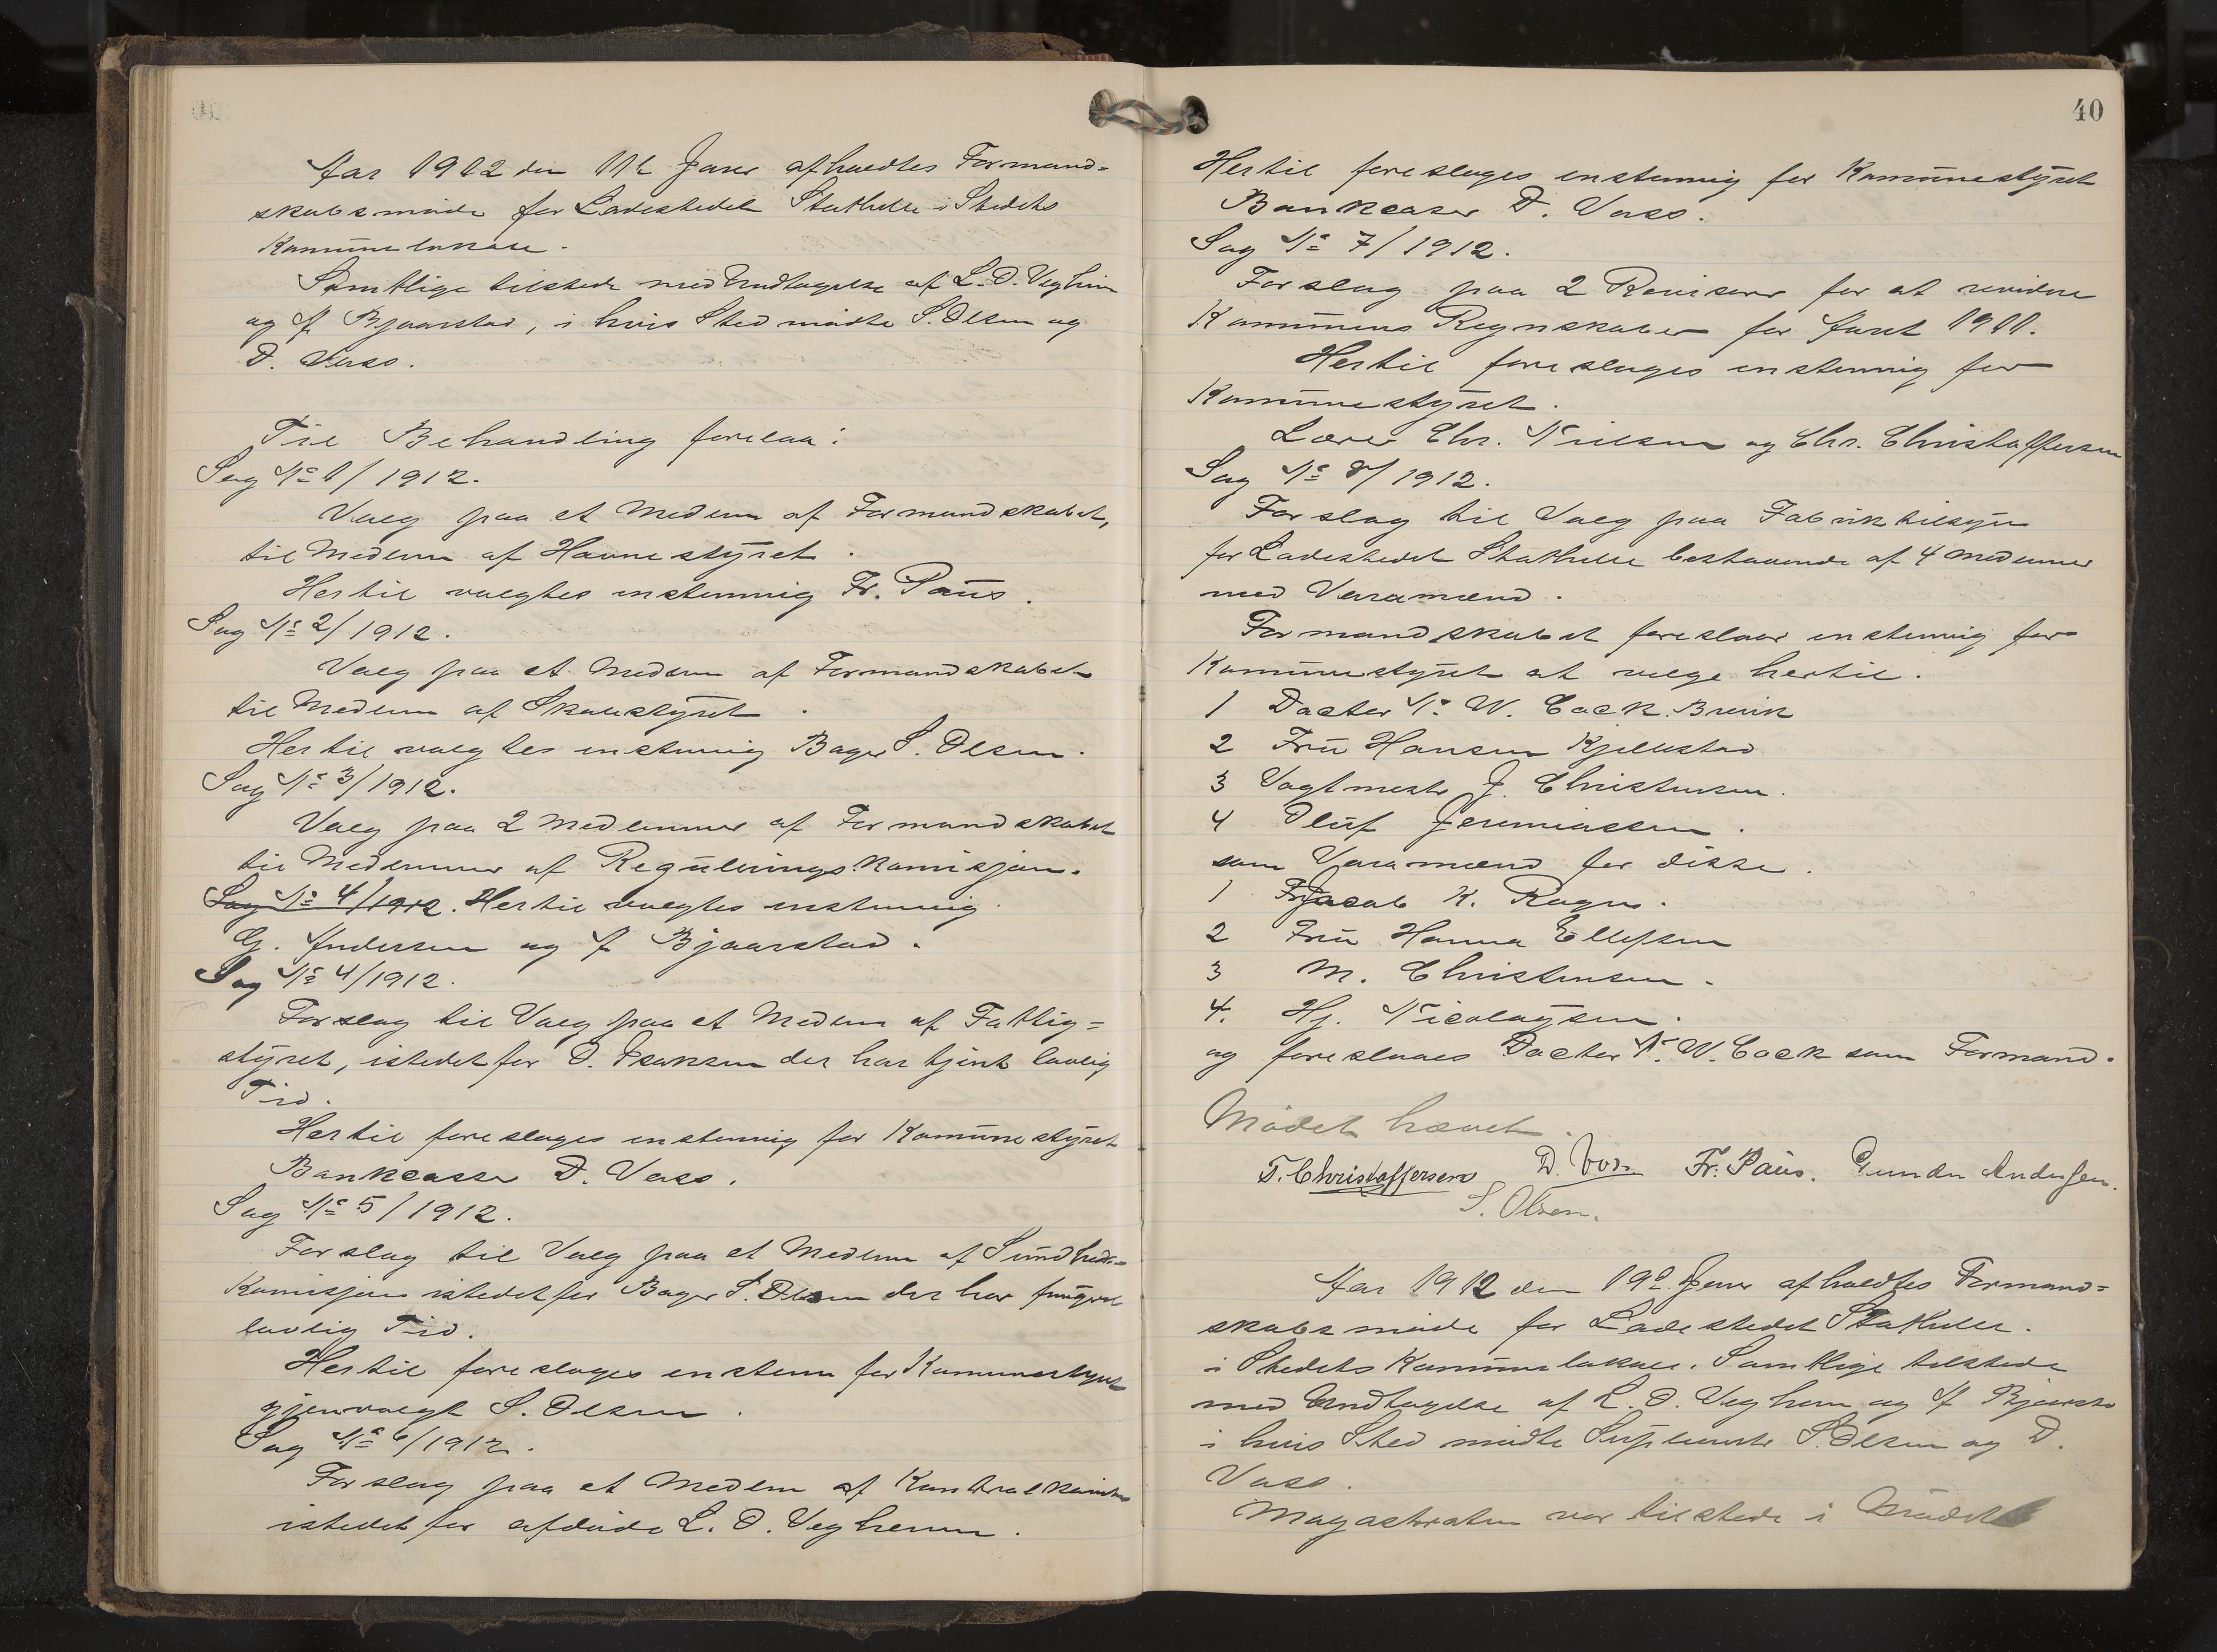 Aar 1912 den 11te Januar afholdtes Formand-
skabsmøde for Ladestedet Stathelle i Stedets
Komunelokale.
Samtlige tilstede med Undtagelse af L. O. Vegheim
og A Bjaarstad, i hvis Sted mødte S. Olsen og
D. Vass.
Til Behandling forelaa:
Sag No 1/1912.
Valg paa et Medlem af Formandskabet,
til Medlem af Havnestyret.
Hertil valgtes enstemmig Fr. Paus.
Sag No 2/1912.
Valg paa et Medlem af Formandskabet
til Medlem af Skolestyret.
Hertil valgtes enstemmig Bager S. Olsen.
Sag No 3/1912.
Valg paa 2 Medlemmer af Formandskabet
til Medlemmer af Reguleringskomisjon.
Sag No 4/1912. Hertil valgtes enstemmig
G. Andersen og A Bjaarstad.
Sag No 4/1912.
Forslag til Valg paa et Medlem af Fattig=
styret, istedetfor O. Isaksen der har tjent lovlig
Tid.
Hertil foreslages enstemmig for Komunestyret
Bankcasser D. Vass.
Sag No 5/1912.
Forslag til Valg paa et Medlem af Sundheds=
komisjon istedetfor Bager S. Olsen der har fungert
lovlig Tid.
Hertil foreslages enstem for Komunestyret
gjenvalgt S. Olsen.
Sag No 6/1912.
Forslag paa et Medlem af
istedetfor afdøde L. O. Vegheim.
40
Hertil foreslages enstemmig for Komunestyret
Bankcaser D. Vass.
Sag No 7/1912.
Forslag paa 2 Revisorer for at revidere
Komunens Regnskaber for Aaret 1911.
Hertil foreslages enstemmig for
Komunestyret.
Lærer Chr. Nielsen og Chr. Christoffersen
Sag No 8/1912.
Forslag til Valg paa Fabriktilsyn
for Ladestedet Stathelle bestaaende af 4 Medlemmer
med Varamænd.
Formandskabet foreslaar enstemmig for
Komunestyret at velge hertil.
1 Docter N. W. Cock. Brevik
2 Fru Hansen Kjellestad
3 Vagtmester J. Christensen.
4 Oluf Jeremiassen.
som Varamænd for disse.
1 Jacob K. Rogn.
2 Fru Hanna Ellefsen
3 M. Christensen.
4. Hj. Nicolaysen.
og foreslaaes Docter N. W. Cock som Formand.
Mødet hævet.
T. Christoffersen D. Voss Fr. Paus. Gunder Andersen.
S. Olsen.
Aar 1912 den 19de Januar afholdtes Formand=
skabsmøde for Ladestedet Stathelle.
i Stedets Komunelokale. Samtlige tilstede
med Undtagelse af L. O. Vegheim og A Bjaarstad
i hvis Sted mødte Suplenter S. Olsen og D.
Vass.
Magastraten var tilstede i Mødet